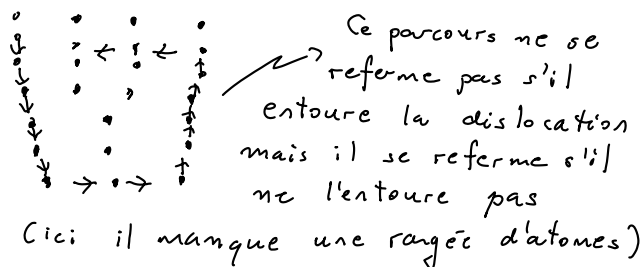 Ce parcours ne se
referme pas s'il
entoure la dislocation
mais il se referme s'il
ne l'entoure pas
(ici il manque une rangée d'atomes)